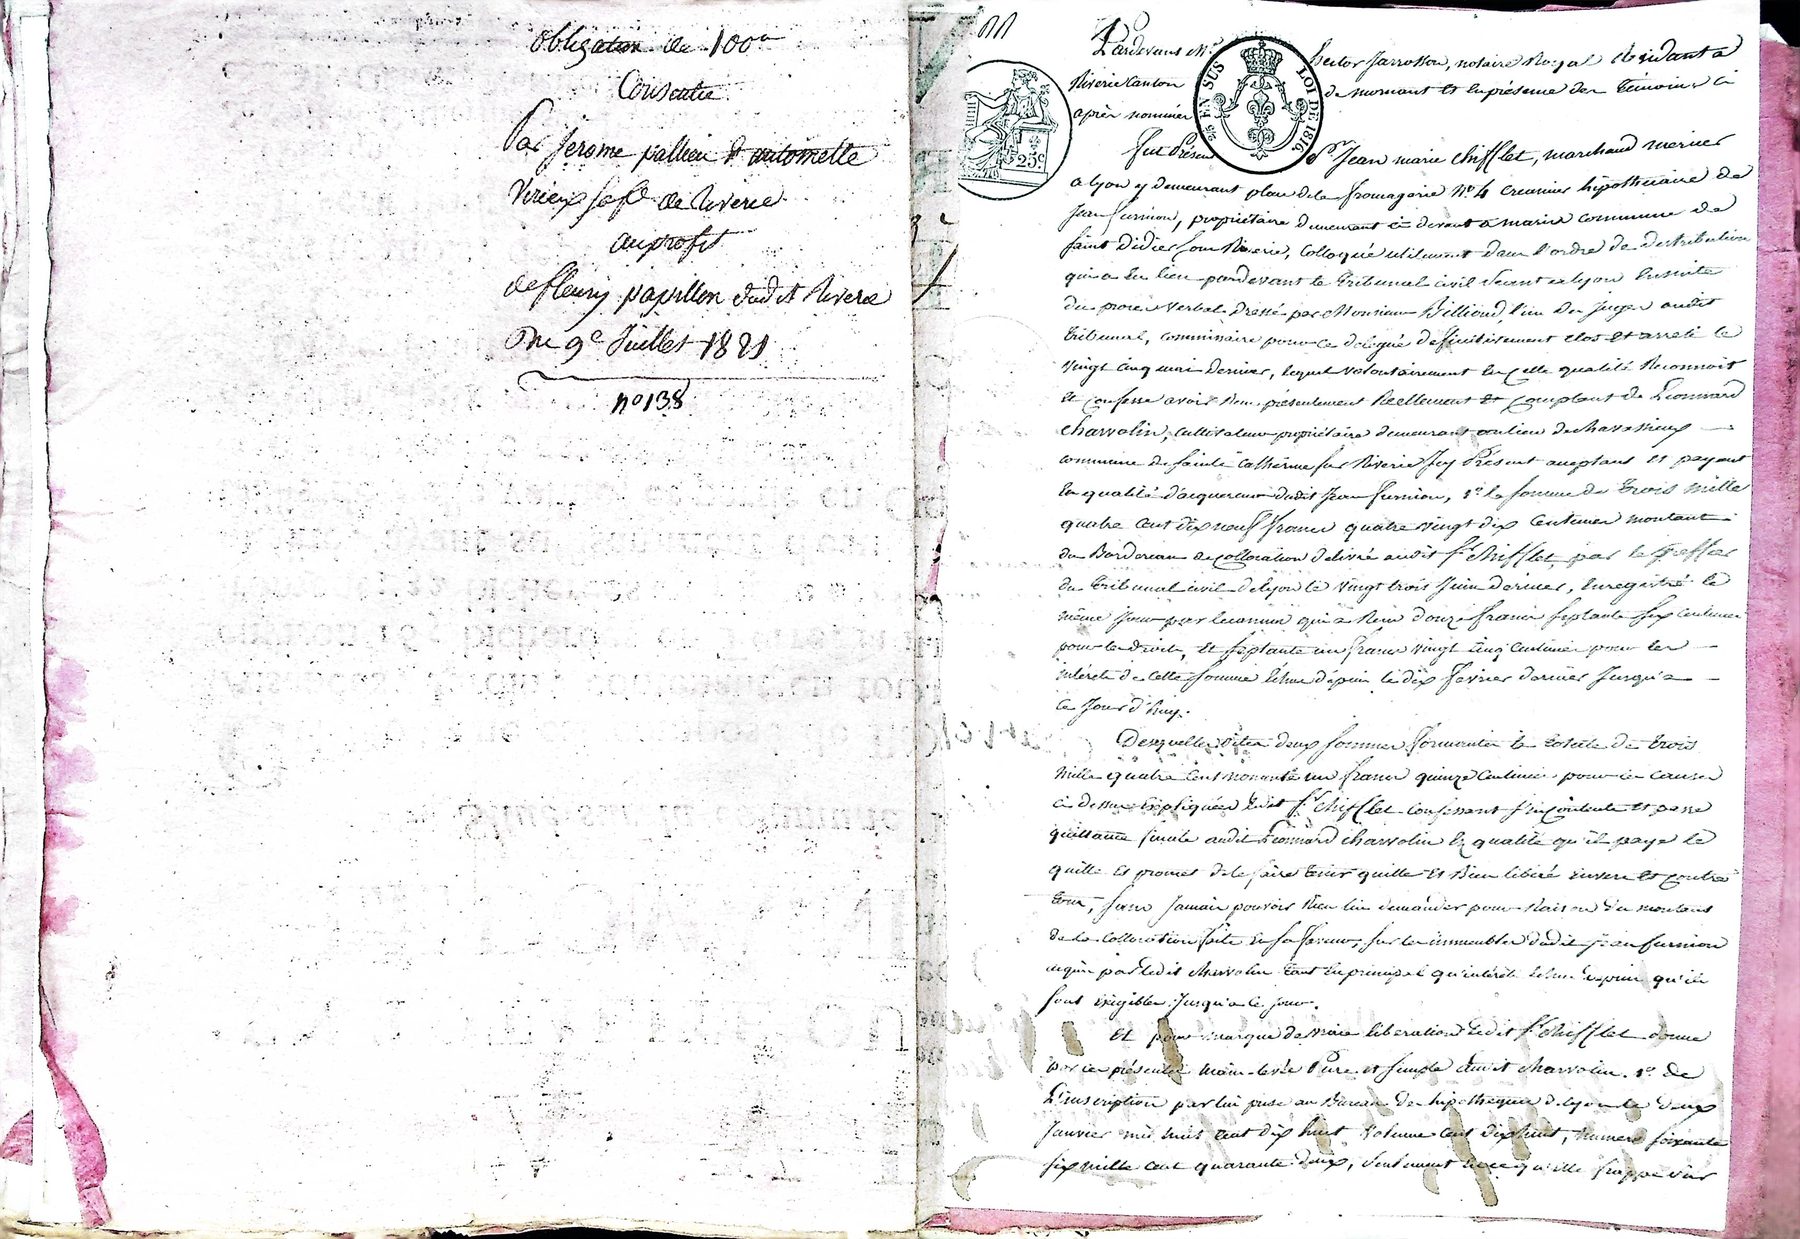 Obligation de 100 #
Consentie
Par Jerome pallieu & antoinette
Virieux sa fe de Riverie
au profit
de fleury papillon dudit Riverie
Du 9e Juillet 1821
no 138
Pardevant Me hector Jarrosson, notaire Royal Residant a
Riverie Canton de mornant Et En présence des témoins ci
après nommés
25 EN SUS LOI DE 1816
25c
fut Présent Sr Jean marie chifflet, marchand mercier
a lyon y demeurant place de la fromagerie No 4 creancier hipothecaire de
Jean furnion, propriétaire demeurant ci devant a commune de
saint didier sous Riverie, Colloqué utilement dans l'ordre de distribution
qui a Eu lieu pardevant le tribunal civil Séant a lyon Ensuite
du proces verbal Dressé par Monsieur Billioud, l'un des juges audit
tribunal, commissaire pour ce délégué definitivement clos et arreté le
vingt cinq mai dernier, lequel volontairement En cette qualité Reconnoit
Et confesse avoir Recu présentement Réellement Et comptant de Leonnard
charvolin, cultivateur propriétaire demeurant au lieu de chavassieux
commune de sainte catherine sur Riverie Icy Présent acceptant Et payant
En qualité d'acquereur dudit Jean furnion, 1o la somme de trois mille
quatre cent dix neuf francs quatre vingt dix centimes montant
du Bordereau de collocation délivré audit Sr chifflet, par le Greffier
du tribunal civil de lyon le vingt trois Juin dernier, Enregistré le
même Jour par lecamus qui a Recu douze francs septante six centimes
pour les droits, Et septante un francs vingt cinq centimes pour les
intérets de cette somme Echus depuis le dix fevrier dernier Jusqu'a
ce Jour d'huy.
Desquelles dites deux sommes formantes le totale de trois
mille quatre cent nonante un francs quinze centimes pour les causes
ci dessus Expliquées Ledit Sr chifflet confessant s'en contente Et passe
quittance finale audit Leonnard charvolin En qualité qu'il paye le
quitte Et promet de le faire tenir quitte Et Bien libéré Envers Et contre
tous, sans Jamais pouvoir Rien lui demander pour Raison du montant
de la collocation faite En sa faveur, sur les immeubles dudit jean furnion
acquis par ledit charvolin tant En principal qu'intérets Echus depuis qu'ils
sont Exigibles Jusqu'a ce jour.
Et pour marque de vraie liberation Ledit Sr chifflet donne
par ces présentes main-levée Pure et simple audit charvolin. 1o de
L'inscription par lui prise au Bureau des hipotheques de lyon le deux
Janvier mil huit cent dix huit volume cent dix huit, numero soixante
six mille cent quarante deux, seulement En ce qu'elle frappe sur